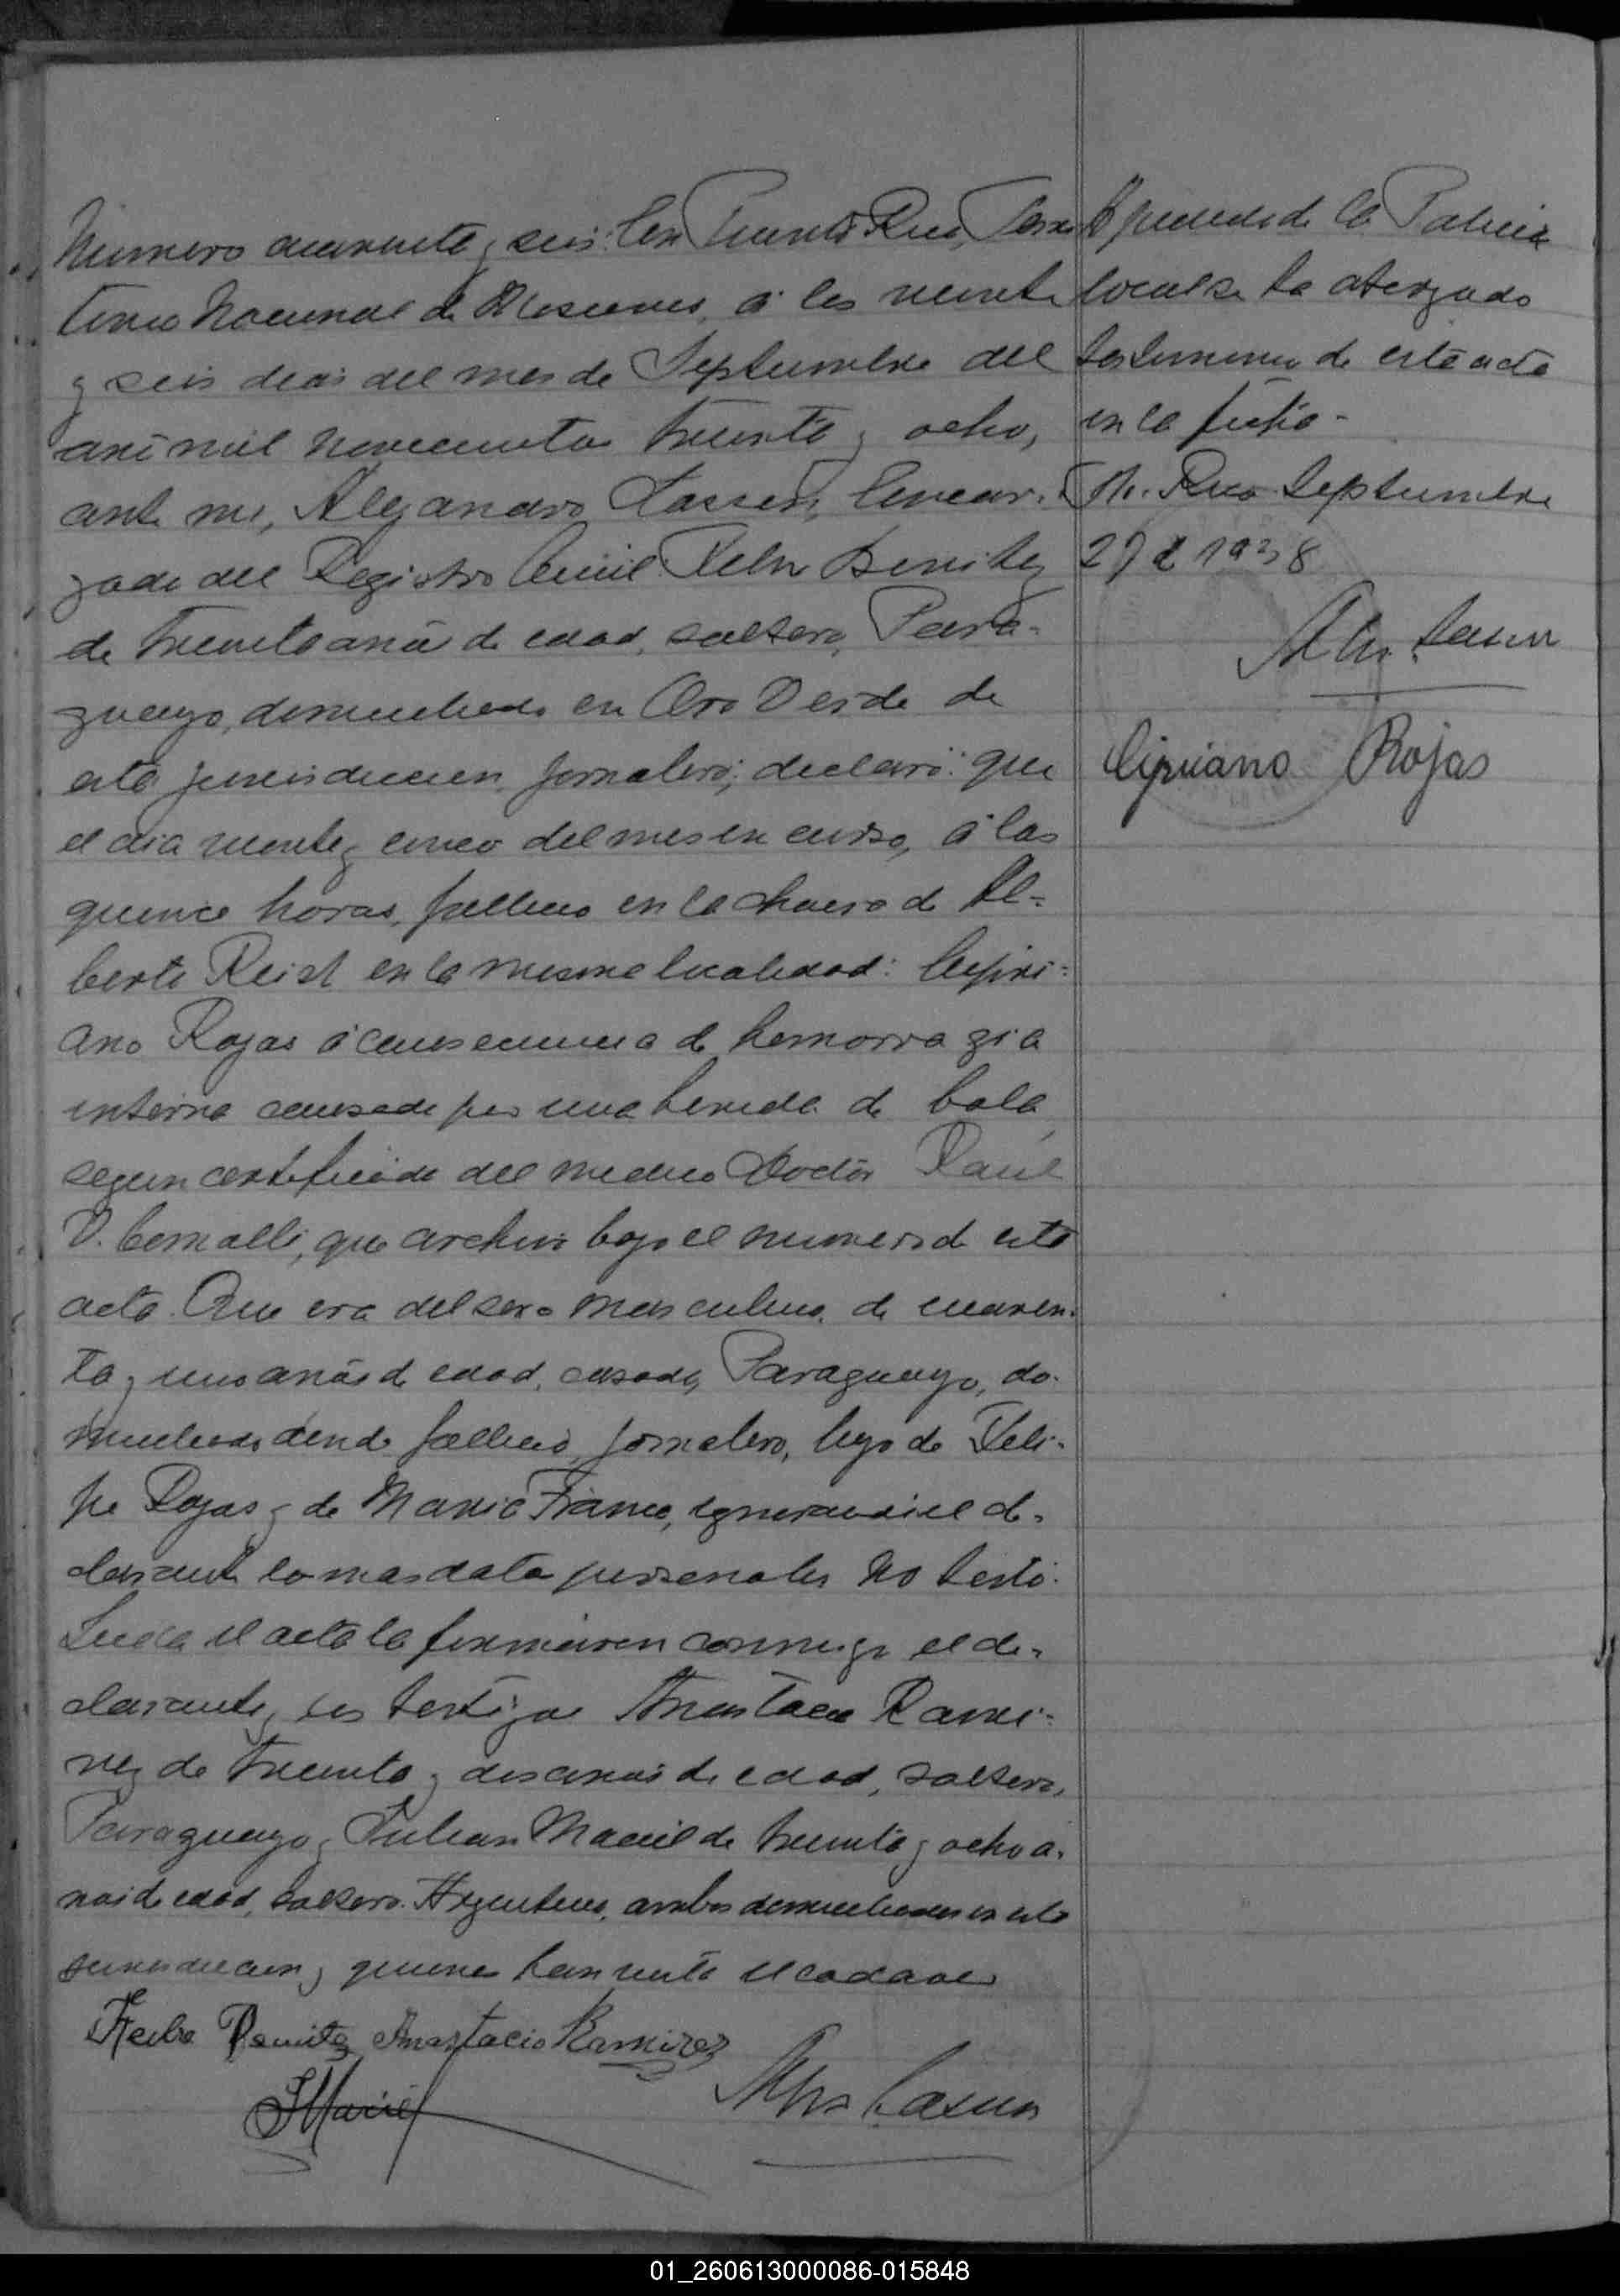 Número cuarenta y seis: En Puerto Rico, Terri
torio Nacional de Misiones, á los veinte
y seis dias del mes de Septiembre del
año mil novecientos treinta y ocho,
ante mi, Alejandro Lassen, Encar-
gado del Registro Civil Benitez
de treinta años de edad, soltero, Para-
guayo, domiciliado en Oro Verde de
esta jurisdiccion, jornalero; declaró: que
el dia veinte y cinco del mes en curso, á las
quince horas, falleció en la chacra de Al-
berto Reist en la misma localidad: Cipri-
ano Rojas á consecuencia de hemorragia
interna causada por una herida de bala,
segun certificado del medico Doctor Raúl
D. que archivo bajo el numero de esta
acta. Que era del sexo masculino, de cuaren-
ta y uno años de edad, casado, Paraguayo, do-
miciliado donde falleció, jornalero, hijo de Feli-
pe Rojas y de Maria Franco, ignorando el de-
clarante los mas datos personales. No testó.
Leida el acta la firmaron conmigo el de-
clarante y los testigos Anastacio Rami-
rez de treinta y dos años de edad, soltero,
Paraguayo y Julian Maciel de treinta y ocho a-
ños de edad, soltero, Argentino, ambos domiciliados en esta
jurisdiccion y quienes han visto el cadaver
Benitez Anastacio Ramirez
JMaciel
Lassen
A pedido de la Policia
local se ha otorgado
testimonio de esta acta
en la fecha-
Pto. Rico Septiembre
27 de 1938
Lassen
Cipriano Rojas
01_260613000086-015848